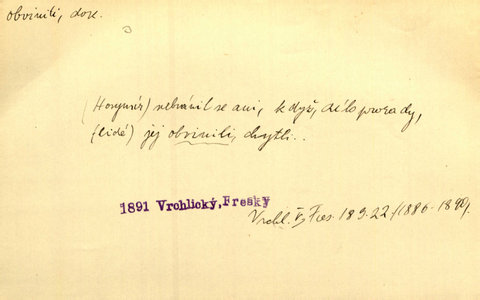 obvinili, dok.
(Horymír) nebránil se ani, když, dílo zrady,
(lidé) jej obvinili, chytli..
1891 Vrchlický, Fresky
Vrchl. Fres. 189.22 (1886-1890).